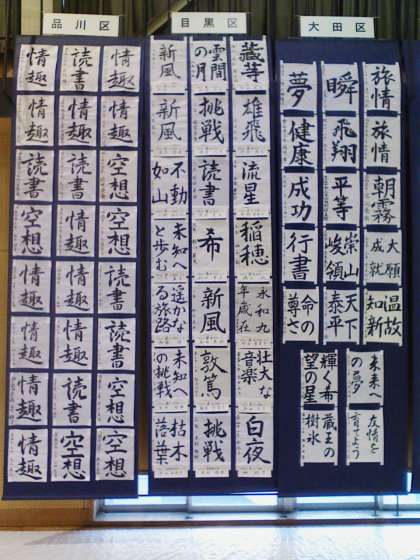 品川区
情趣
情趣
空想
空想
読書
読書
空想
空想
読書
情趣
読書
情趣
情趣
情趣
読書
空想
情趣
情趣
読書
空想
情趣
情趣
情趣
情趣
目黒区
蔵等
雄飛
流星
稲穂
永和九
年歳在
壮大な
音楽
白夜
雲間
の月
挑戦
読書
希
新風
敦篤
挑戦
新風
新風
不動
如山
未知へ
と歩む
遥かな
る旅路
未知へ
の挑戦
枯木
落葉
大田区
旅情
旅情
朝霧
大願
成就
温故
知新
瞬
飛翔
平等
崇山
峻領
天下
泰平
夢
健康
成功
行書
命の
尊さ
未来へ
の夢
友情を
育てよう
輝く希
望の星
蔵王の
樹氷